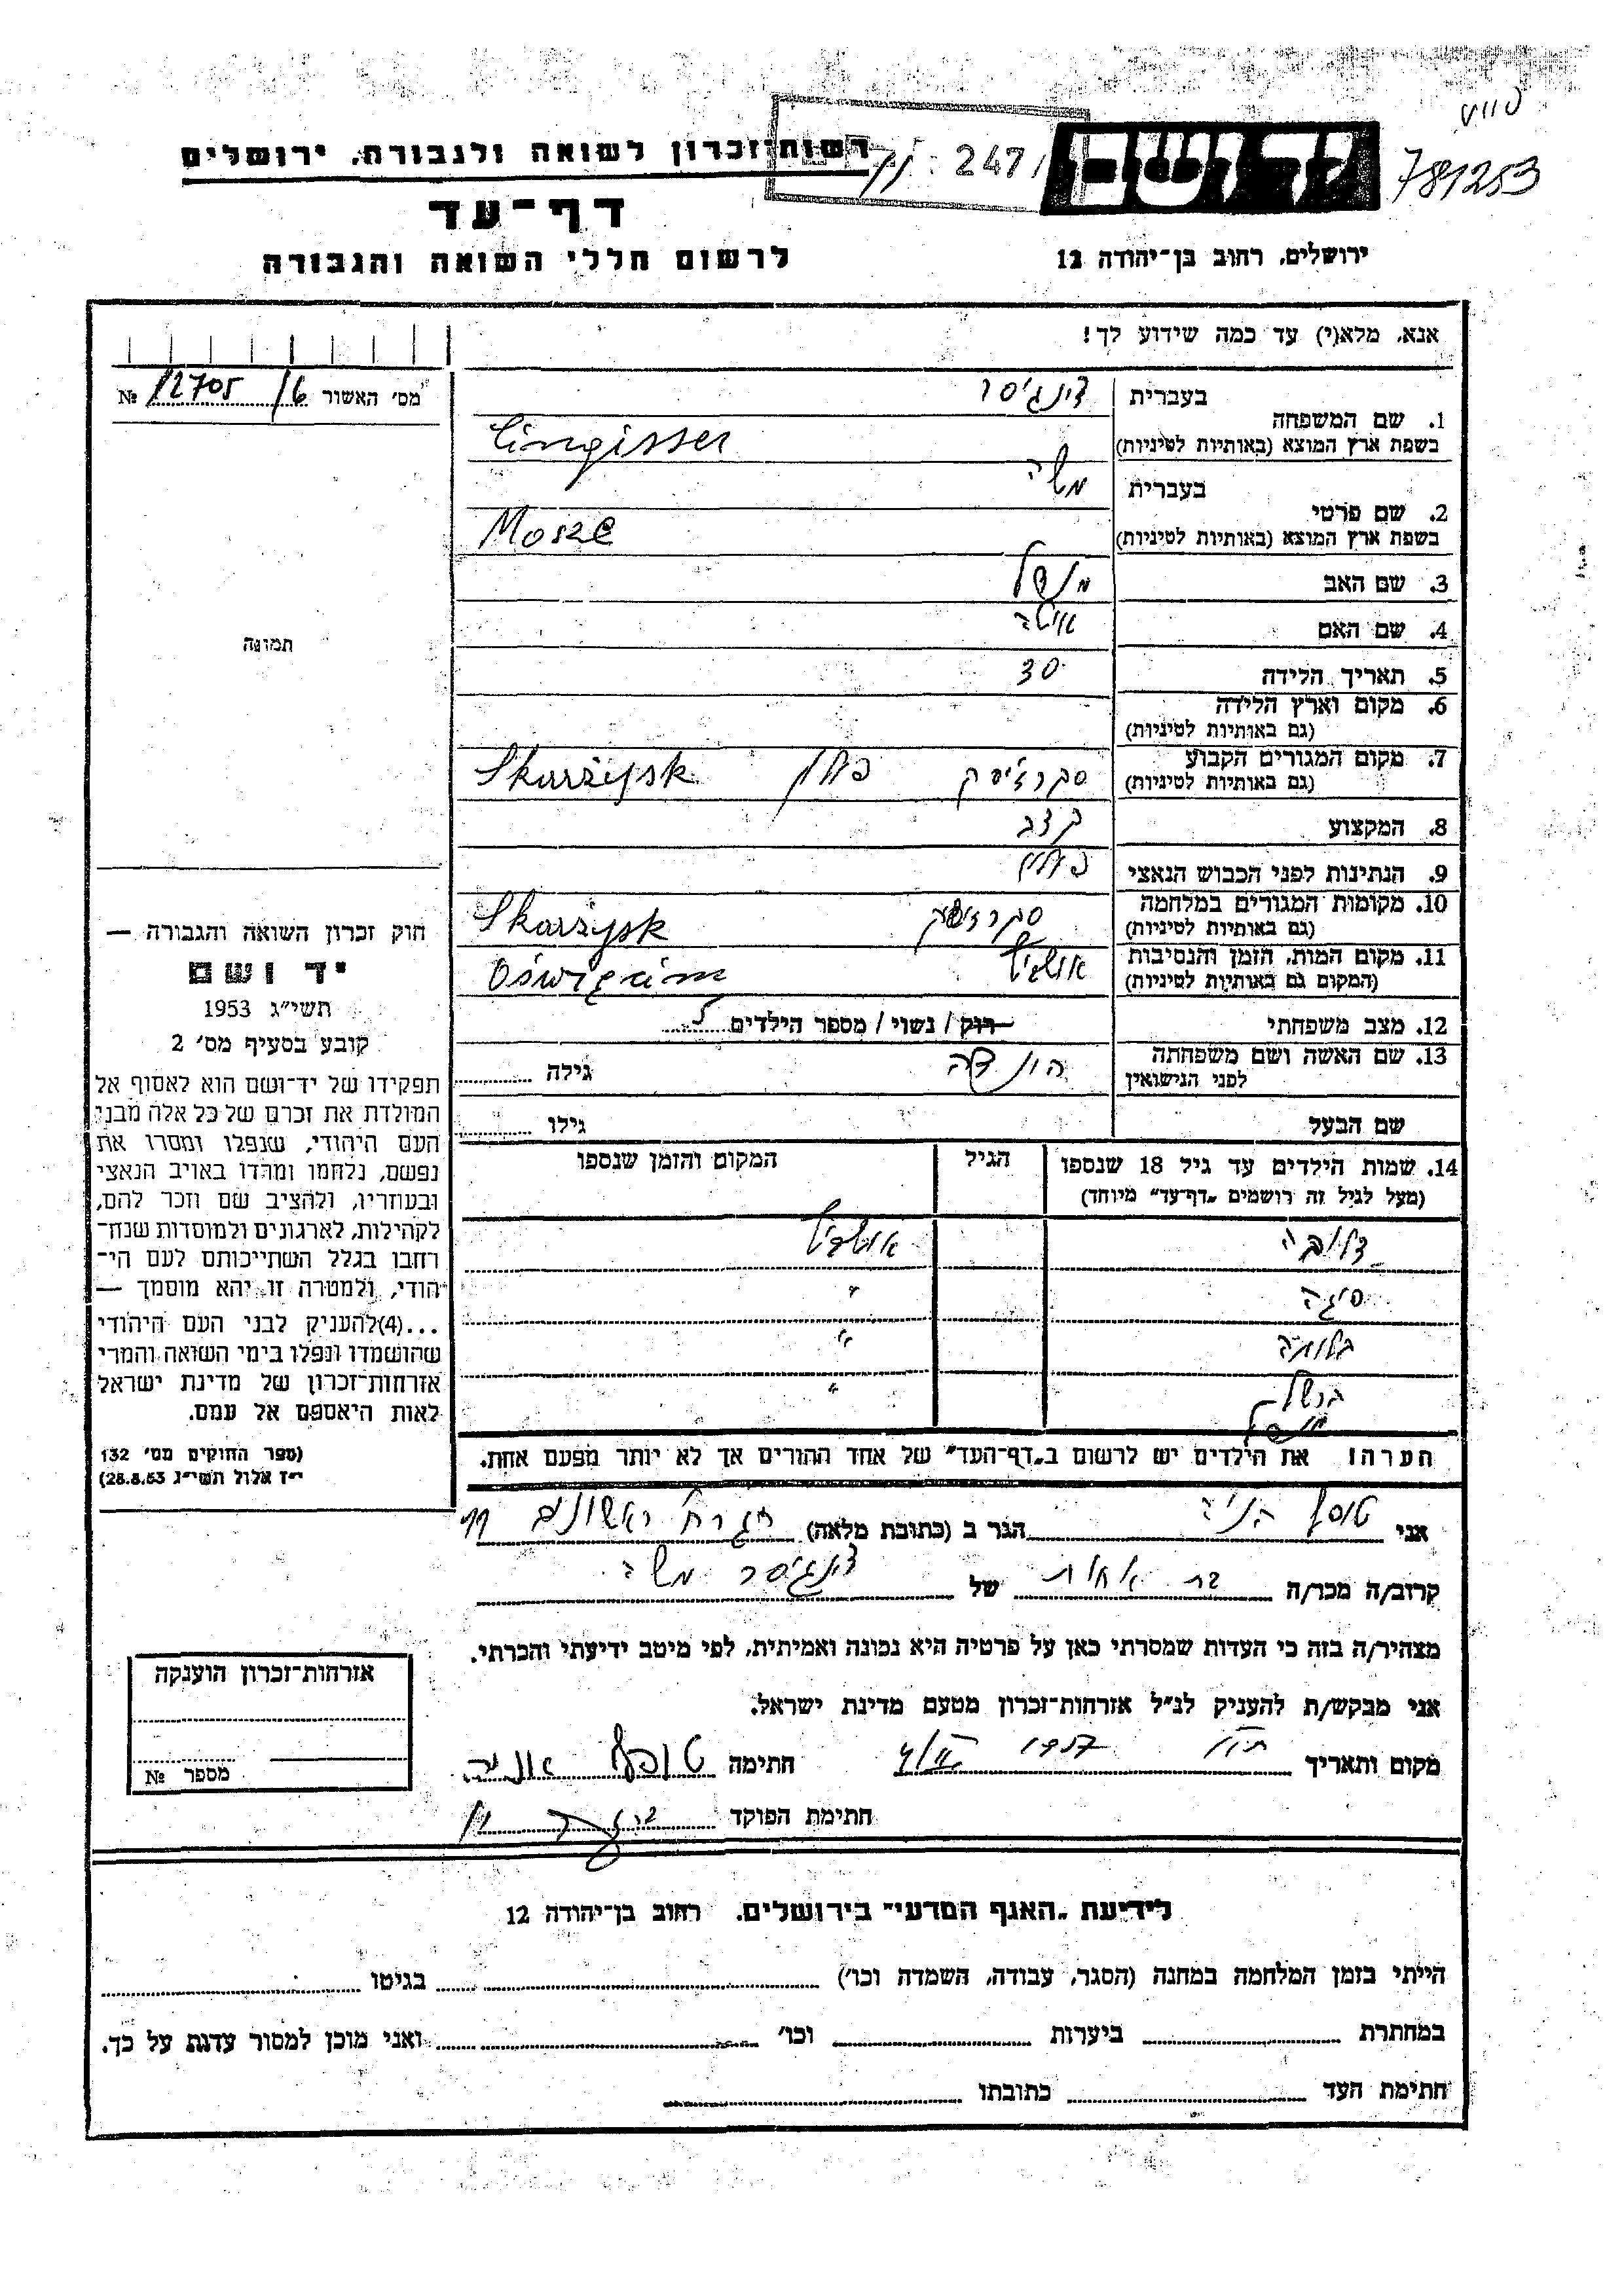 781253
247
יד ושם
רשות־זכרון לשואה ולגבורה, ירושלים
דף־עד
לרשום חללי השואה והגבורה
ירושלים, רחוב בן־יהודה 12
אנא, מלא(י) עד כמה שידוע לך!
מס' האשור 16/ 12705 №
1. שם המשפחה
בעברית צינגיסר
בשפת ארץ המוצא (באותיות לטיניות) Cingisser
2. שם פרטי
בעברית משה
בשפת ארץ המוצא (באותיות לטיניות) Mosze
3. שם האב
4. שם האם
5. תאריך הלידה 30
6. מקום וארץ הלידה
(גם באותיות לטיניות)
7. מקום המגורים הקבוע
(גם באותיות לטיניות) סקרז'יסק פולין Skarżysk
8. המקצוע קצב
9. הנתינות לפני הכבוש הנאצי פולין
10. מקומות המגורים במלחמה
(גם באותיות לטיניות) Skarżysk
11. מקום המות, הזמן והנסיבות
(המקום גם באותיות לטיניות) אושביץ Oświęcim
12. מצב משפחתי רוק / נשוי / מספר הילדים 5
13. שם האשה ושם משפחתה
לפני הנישואין הינדה גילה
שם הבעל גילו
14. שמות הילדים עד גיל 18 שנספו
(מעל לגיל זה רושמים "דף־עד" מיוחד)
הגיל
המקום והזמן שנספו
אושביץ
"
"
"
הערה: את הילדים יש לרשום ב"דף־העד" של אחד ההורים אך לא יותר מפעם אחת.
תמונה
חוק זכרון השואה והגבורה —
יד ושם
תשי"ג 1953
קובע בסעיף מס' 2
תפקידו של יד־ושם הוא לאסוף אל
המולדת את זכרם של כל אלה מבני
העם היהודי, שנפלו ומסרו את
נפשם, נלחמו ומרדו באויב הנאצי
ובעוזריו, ולהציב שם וזכר להם,
לקהילות, לארגונים ולמוסדות שנח־
רחבו בגלל השתייכותם לעם הי־
הודי, ולמטרה זו יהא מוסמך —
...(4)להעניק לבני העם היהודי
שהושמדו ונפלו בימי השואה והמרי
אזרחות־זכרון של מדינת ישראל
לאות היאספם אל עמם.
(ספר החוקים מס' 132
י"ז אלול תשי"ג 28.8.53)
אני הגר ב (כתובת מלאה) ראשונים
קרוב/ה מכר/ה בת אחות של צינגיסר משה
מצהיר/ה בזה כי העדות שמסרתי כאן על פרטיה היא נכונה ואמיתית, לפי מיטב ידיעתי והכרתי.
אני מבקש/ת להעניק לנ"ל אזרחות־זכרון מטעם מדינת ישראל.
מקום ותאריך 1957 חתימה
חתימת הפוקד
אזרחות־זכרון הוענקה
מספר №
לידיעת "האגף המדעי" בירושלים, רחוב בן־יהודה 12
הייתי בזמן המלחמה במחנה (הסגר, עבודה, השמדה וכו') בגיטו
במחתרת ביערות וכו' ואני מוכן למסור עדות על כך.
חתימת העד כתובתו